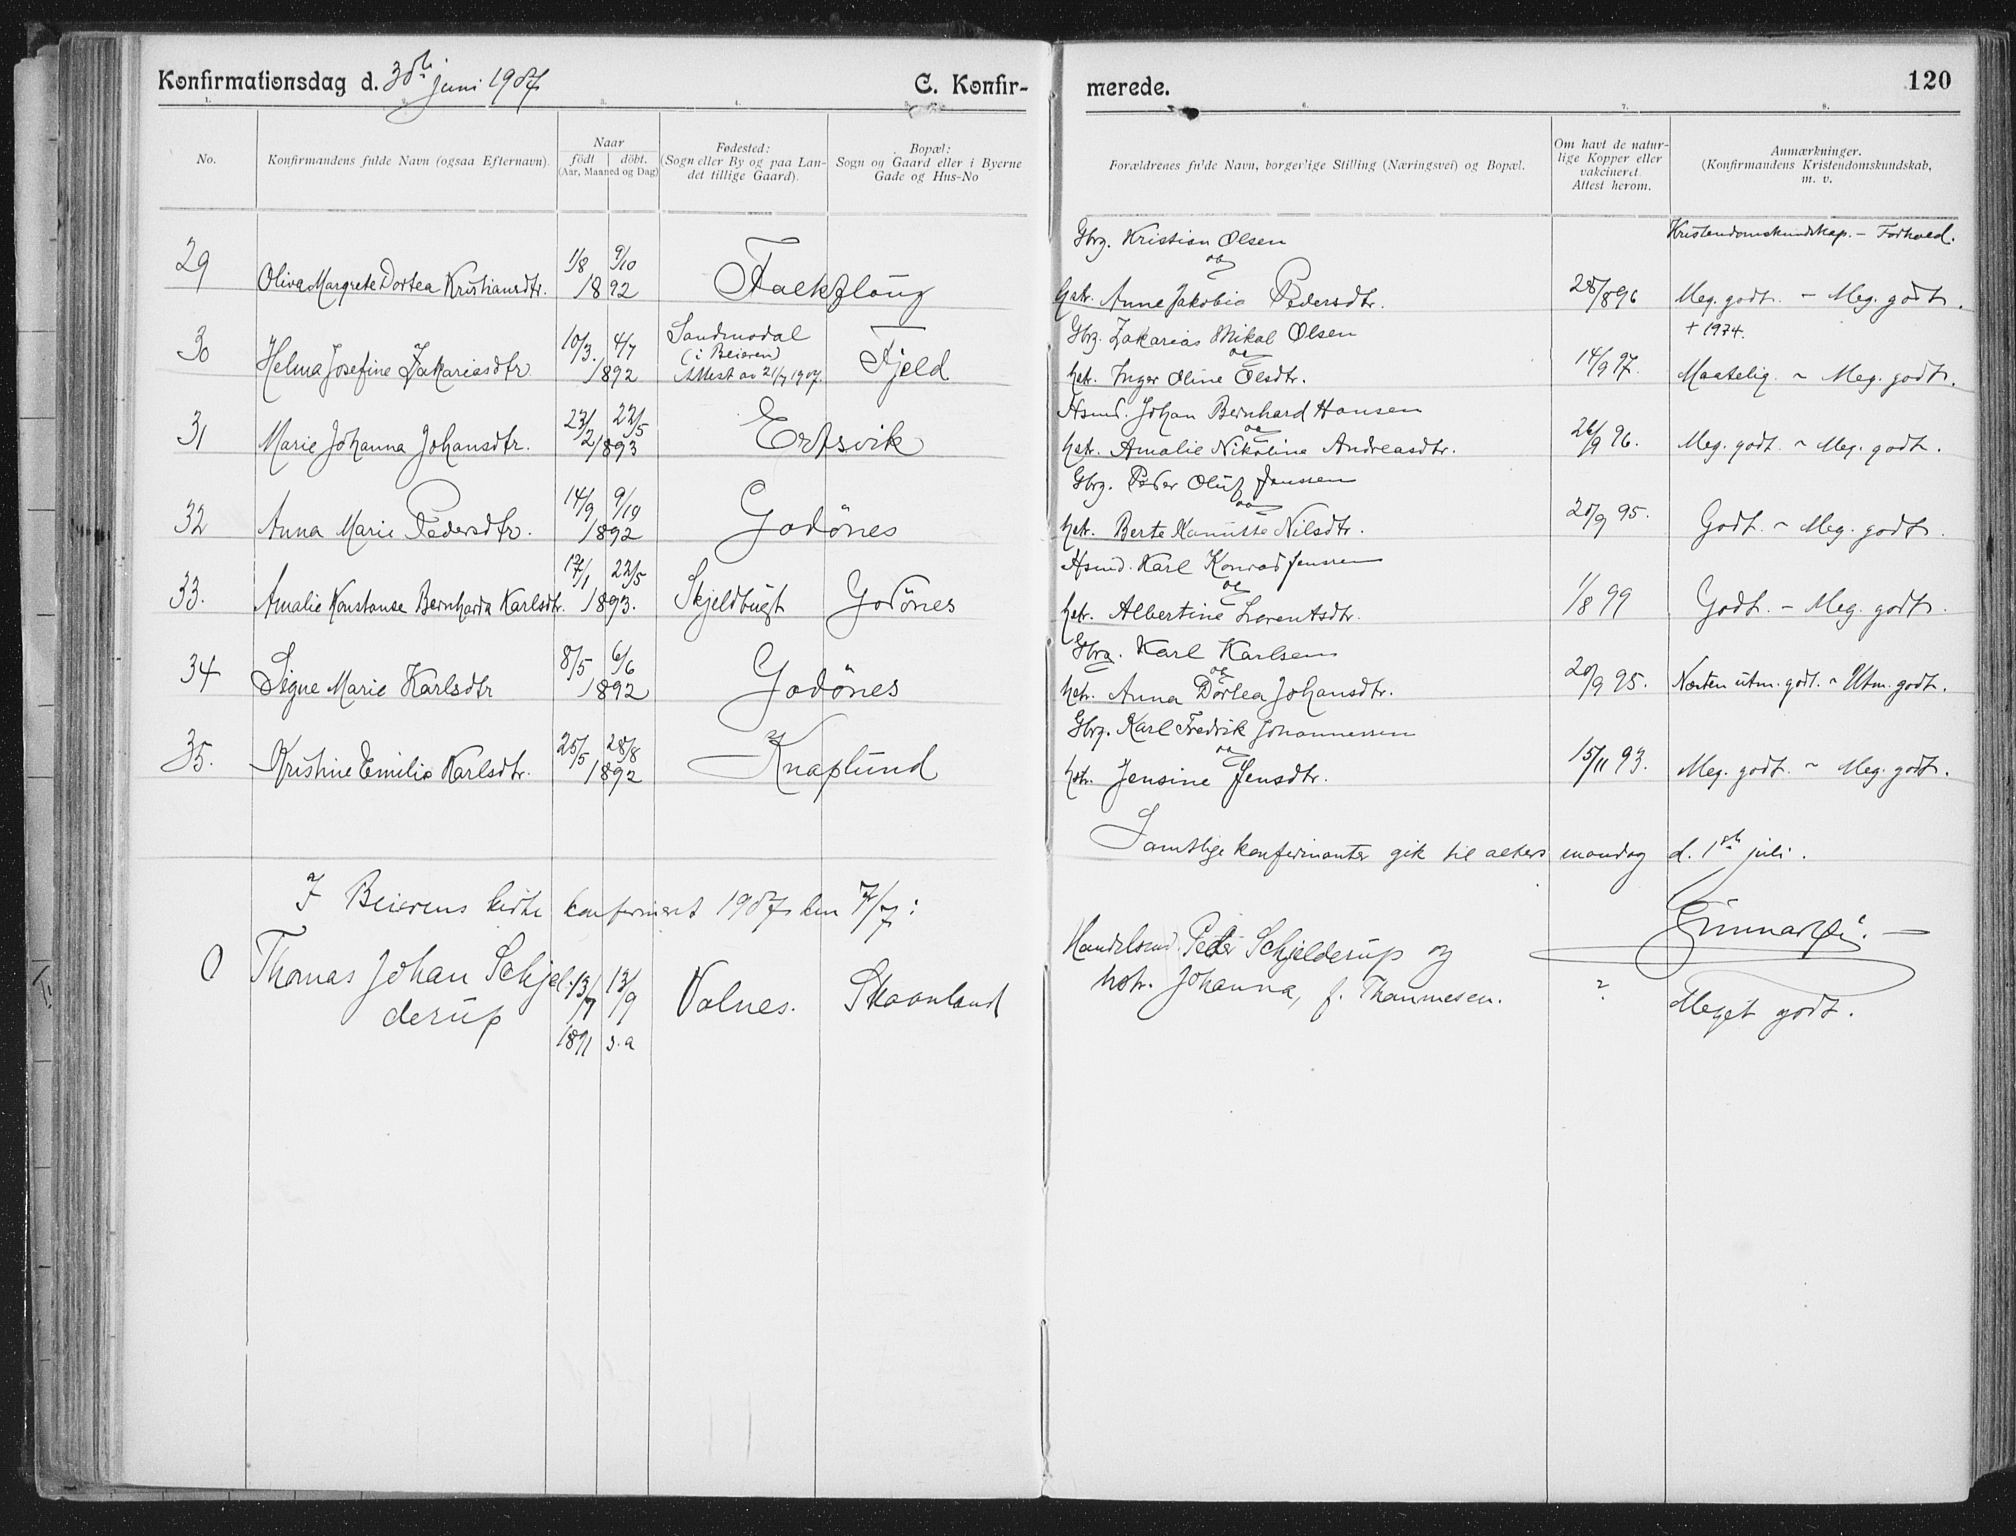 Konfirmationsdag d. 30th juni 1907 C. Konfir-
1. 2. 3. 4. 5.
No.
Konfirmandens fulde Navn (ogsaa Efternavn).
Naar
født | döbt.
(Aar, Maaned og Dag)
Fødested:
(Sogn eller By og paa Lan-
det tillige Gaard).
Bopæl:
Sogn og Gaard eller i Byerne
Gade og Hus-No
29 Oliva Margrete Dortea Kristiansdtr. 1/8 9/10 1892
30 Helma Josefine Zakariasdtr. 10/3. 4/7 1892 Sandmodal
(i Beieren)
Attest av 21/7 1907. Fjeld
31 Marie Johanna Johansdtr. 22/5 1893 Ertsvik
32 Anna Marie Pedersdtr. 14/9 9/10 1892 Godönes
33. Amalie Konstanse Bernharda Karlsdtr. 17/1 22/5 1893. Skjeldbugt Godönes
34 Signe Marie Karlsdtr 8/5 6/6 1892 Godönes
35. Kristine Emilie Karlsdtr. 25/5 28/8 1892 Knaplund
I Beierens kirke konfirmeret 1907 den 7/7:
0 Thomas Johan Schjel-
derup 13/7 13/9 1891 s.a Valnes. Skaanland
merede. 120
6. 7. 8.
Forældrenes fulde Navn, borgerlige Stilling (Næringsvei) og Bopæl.
Om havt de natur-
lige Kopper eller
vakcineret.
Attest herom.
Anmærkninger.
(Konfirmandens Kristendomskundskab,
m. v.
Kristendomskundskap. - Forhold.
Gbrg. Kristian Olsen
og
hstr. Anne Jakobia Pedersdtr. 28/8 96 Meg. godt. - Meg. godt.
Gbrg. Zakarias Mikal Olsen + 1974.
og
hstr. Inger Oline Olsdtr. 14/9 97. Maatelig. ~ Meg. godt.
Hsmd. Johan Bernhard Hansen
og
hstr. Amalie Nikoline Andreasdtr. 26/9 96. Meg. godt. ~ Meg. godt.
Gbrg. Peder Oluf Jenssen
og
hstr. Berte Nilsdtr. 20/9 95. Godt. ~ Meg. godt.
Hsmd. Karl Konrad Jenssen
og
hstr. Albertine Lorentsdtr. 1/8 99 Godt. - Meg. godt.
Gbrg. Karl Karlsen
og
hstr. Anna Dortea Johansdtr. 20/9 95. Næsten utm. godt. ~ Utm. godt.
Gbrg. Karl Fredrik Johannessen
og
hstr. Jensine Jensdtr. 15/11 93. Meg. godt. ~ Meg. godt.
Samtlige konfirmanter gik til alters mandag d. 1ste juli.
Handelsmd. Peder Schjelderup og
hstr. Johanna, f. Thommesen. ? Meget godt.